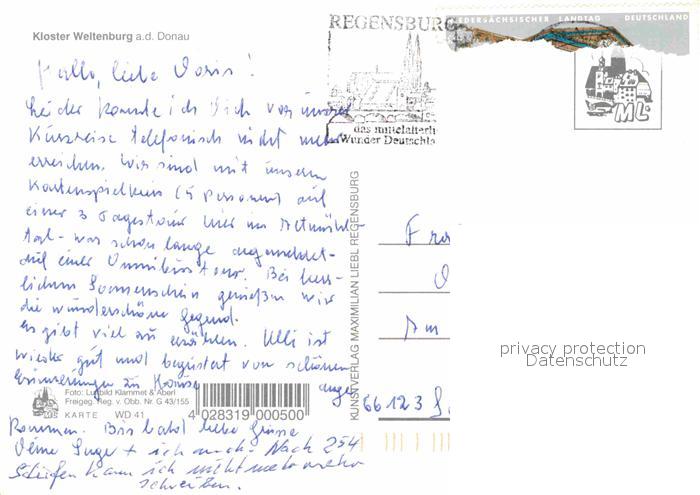 Kloster Weltenburg a.d. Donau
REGENSBURG
das mittelalterl
Wunder Deutschla
NIEDERSÄCHSISCHER LANDTAG DEUTSCHLAND
ML
Hallo, liebe Doris!
Leider konnte ich Dich vor unserer
Kurzreise telefonisch nicht mehr
erreichen. Wir sind mit unserem
Kartenspielkreis (5 Personen) auf
einer 3 Tagestour hier im Altmühl-
tal - was schon lange angemeldet -
auf einer Omnibustour. Bei herr-
lichem Sonnenschein genießen wir
die wunderschöne Gegend.
Es gibt viel zu erzählen. Ulli ist
wieder gut und begeistert von schönen
Erinnerungen zu Hause ange
kommen. Bis bald liebe Grüsse
Deine Inge + ich auch. Nach 254
Schleifen kann ich nicht mehr
schreiben.
KUNSTVERLAG MAXIMILIAN LIEBL REGENSBURG
Fra
Am
66123 S
privacy protection
Datenschutz
Foto: Luftbild Klammet & Aberl
Freigeg. Reg. v. Obb. Nr. G 43/155
KARTE WD 41
4 028319 000500